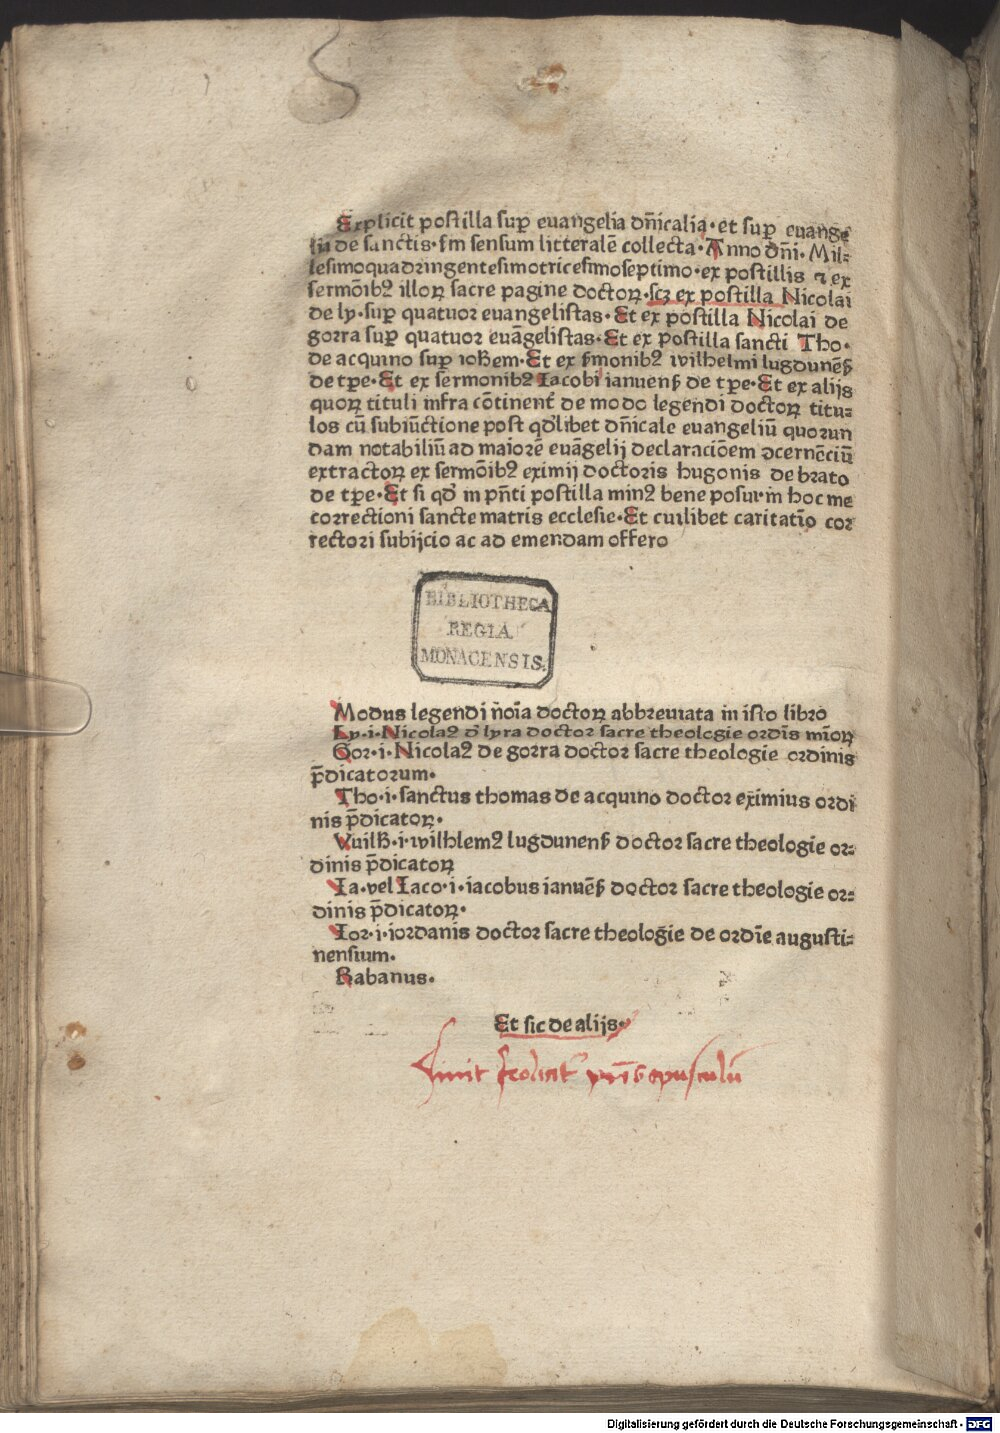 Explicit postilla sup̲ euangelia dn̄icalia·et sup̲ euange
lia de sanctis·ẜm sensum litteralē collecta·Anno dn̄i·Mil⸗
lesimoquadringentesimotricesimoseptimo·ex postillis ⁊ ex
sermōibꝰ illoꝝ sacre pagine doctoꝝ·scꝫ ex postilla Nicolai
de ly·sup̲ quatuor euangelistas·Et ex postilla Nicolai de
gorra sup̲ quatuor euāgelistas·Et ex postilla sancti Tho·
de acquino sup̲ ioħem·Et ex ẜmonibꝰ wilhelmi lugdunēẜ
de tꝑe·Et ex sermonibꝰ Iacobi ianuenẜ de tꝑe·Et ex alijs
quoꝝ tituli infra cōtinent̄ de modo legendi doctoꝝ titu⸗
los cū subiūctione post qd̕libet dn̄icale euangeliū quorun
dam notabiliū ad maiorē euāgelij declaraciōem ↄcernēciū
extractoꝝ ex sermōibꝰ eximij doctoris hugonis de brato
de tꝑe·Et si qd̕ in pn̄ti postilla minꝰ bene posui·in hoc me
correctioni sancte matris ecclesie·Et cuilibet caritatīo cor
rectori subijcio ac ad emendam offero
BIBLIOTHECA
REGIA
MONACENSIS.
Modus legendi n̄oīa doctoꝝ abbreuiata in isto libro
Ly·i·Nicolaꝰ d̕ lyra doctor sacre theologie ordīs mīoꝝ
Gor·i·Nicolaꝰ de gorra doctor sacre theologie ordinis
p̄dicatorum·
Tho·i·sanctus thomas de acquino doctor eximius ordi
nis p̄dicatoꝝ·
Wuilħ·i·wilhlemꝰ lugdunenẜ doctor sacre theologie or⸗
dinis p̄dicatoꝝ
Ia·vel Iaco·i·iacobus ianuēẜ doctor sacre theologie or⸗
dinis p̄dicatoꝝ·
Ior·i·iordanis doctor sacre theologie de ordīe augusti⸗
nensium·
Rabanus·
Et sic de alijs·
opusculū
Digitalisierung gefördert durch die Deutsche Forschungsgemeinschaft - DFG